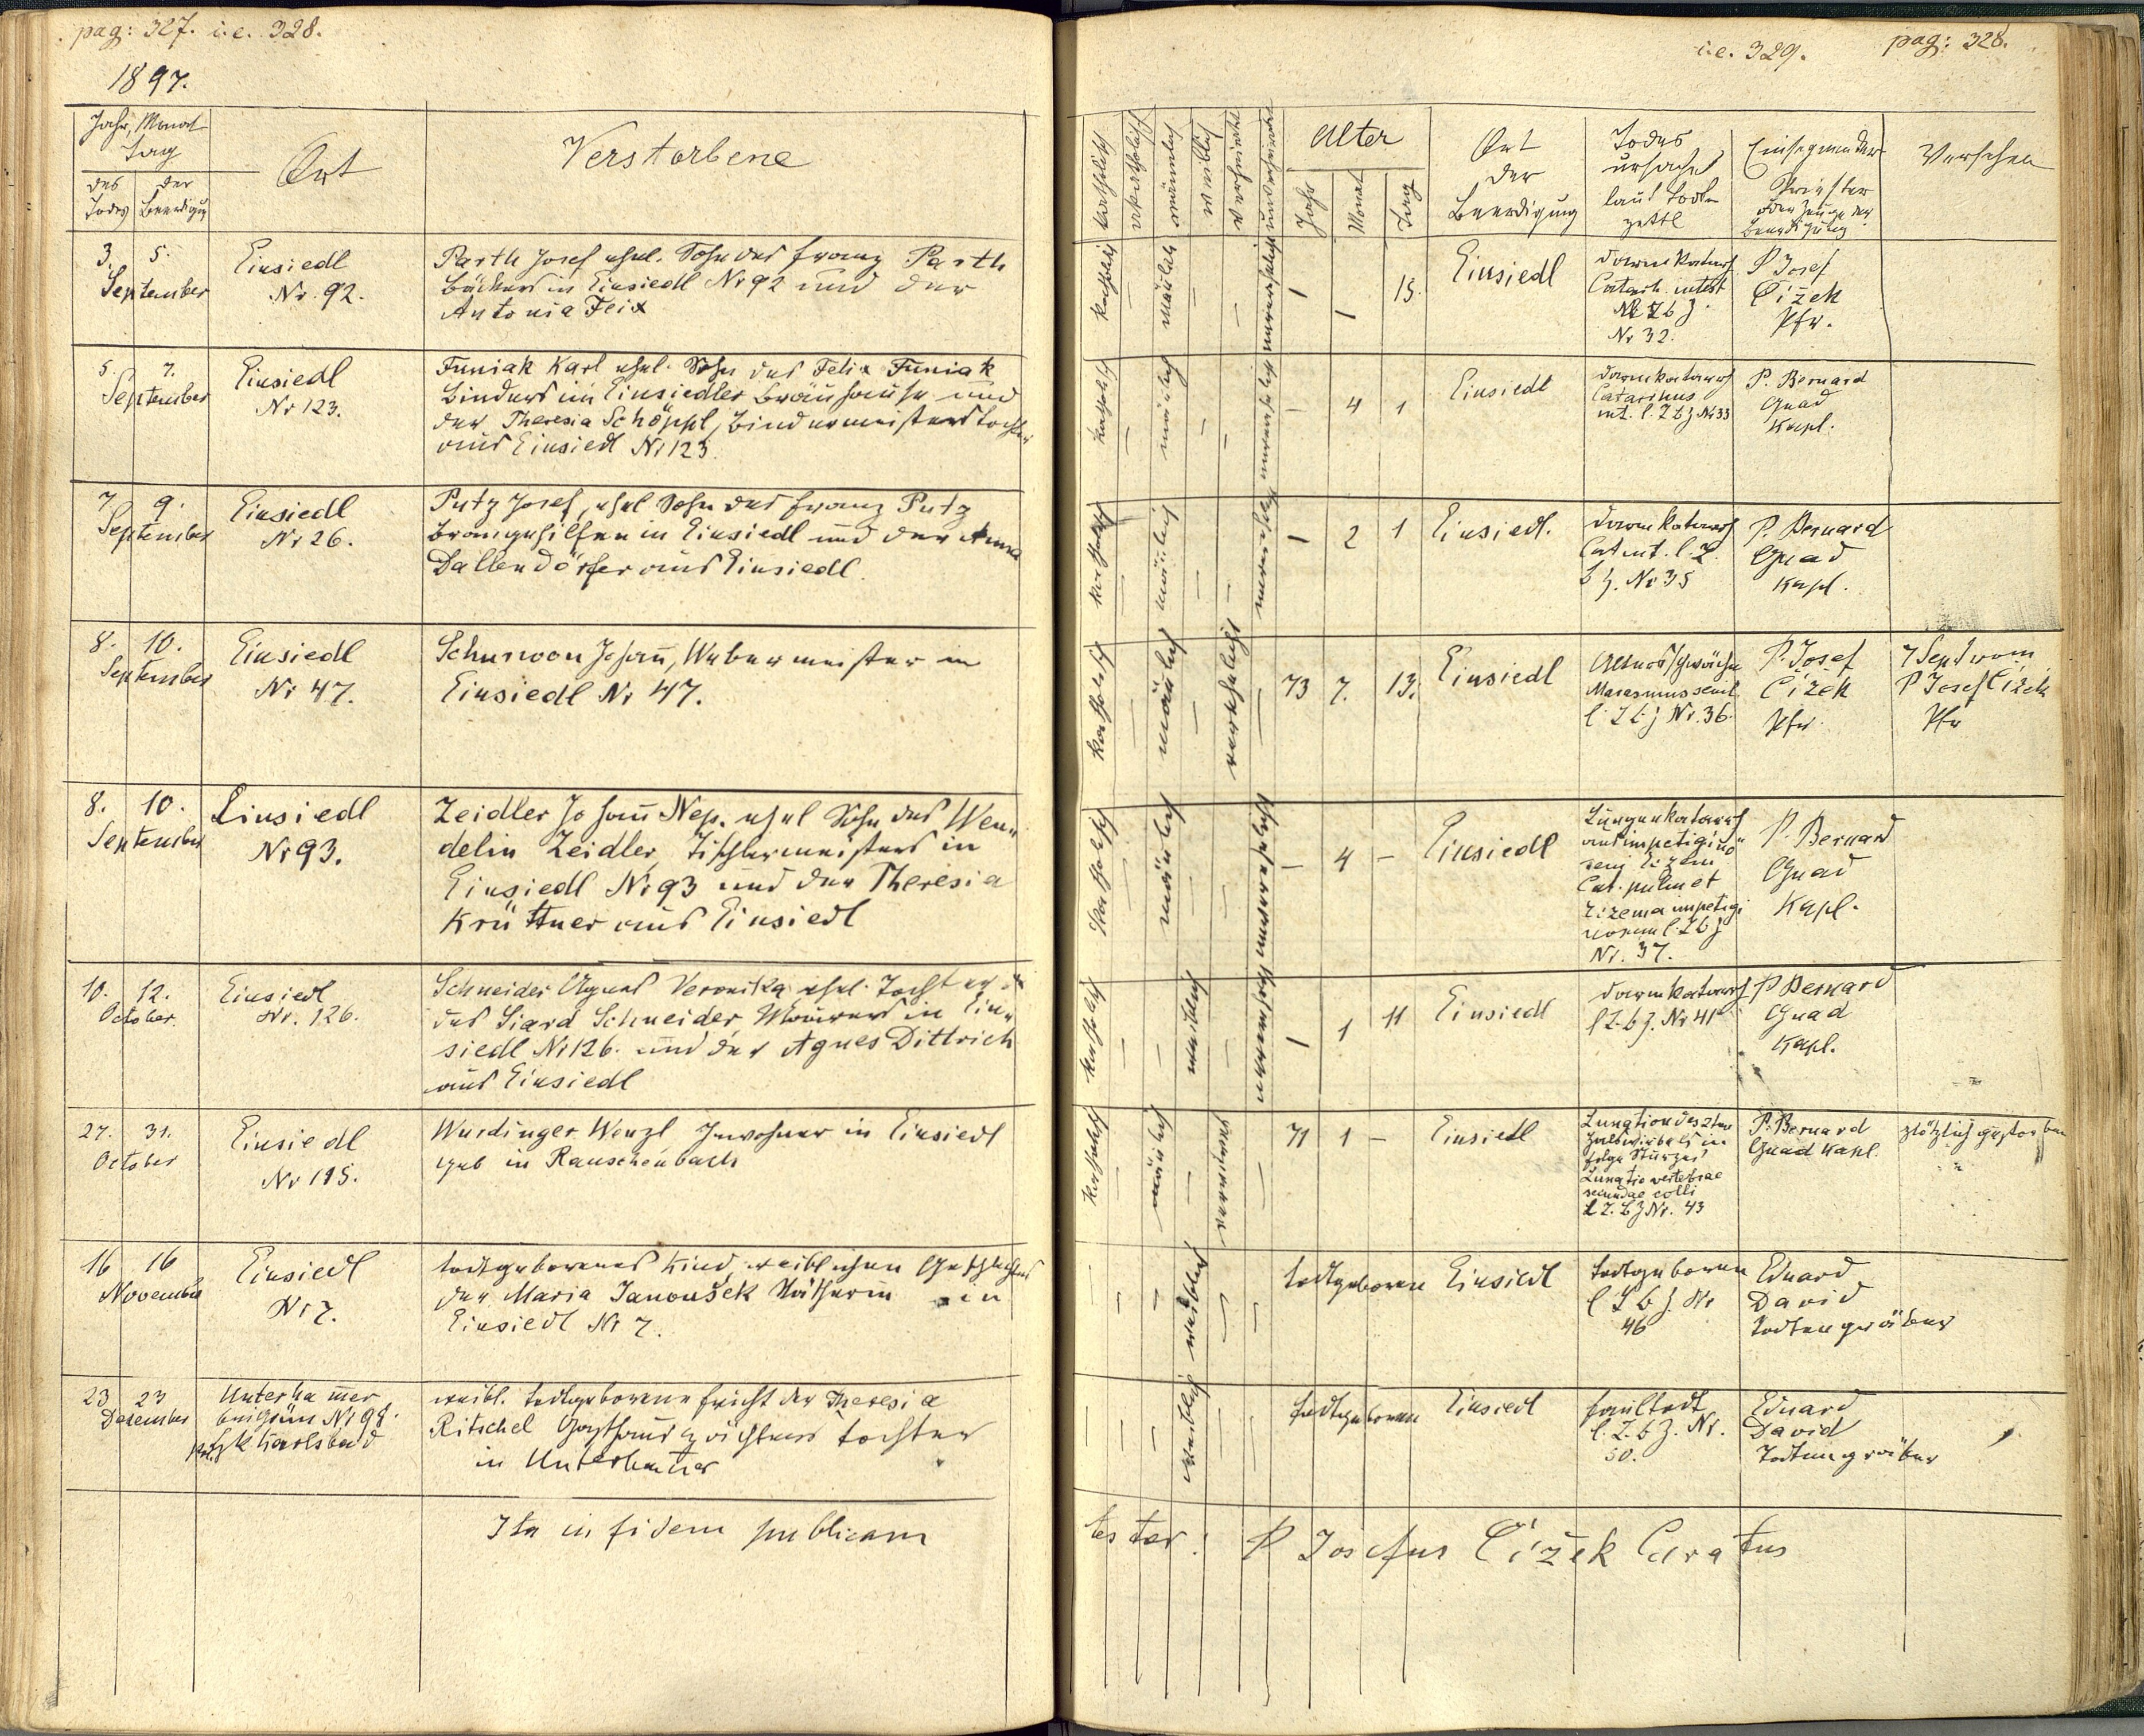 pag: 327. i.e. 328.
1897.
Jahr, Monat
Tag
des Todes
der Beerdigung
Ort
Verstorbene
3. 5.
September
Einsiedl
Nr. 92.
Parth Josef ehel. Sohn des Franz Parth
Bäckers in Einsiedl Nr 92 und der
Antonia Feix
5. 7.
September
Einsiedl
Nr 123.
Funiak Karl ehel. Sohn des Felix Funiak
Binders im Einsiedler Bräuhause und
der Theresia Schöppl, Bindermeisterstochter
aus Einsiedl Nr 123.
7 9.
September
Einsiedl
Nr 26.
Putz Josef, ehel Sohn des Franz Putz
Braugehilfen in Einsiedl und der Anna
Dallendörfer aus Einsiedl.
8. 10.
September
Einsiedl
Nr 47.
Johañ, Webermeister in
Einsiedl Nr 47.
8. 10.
September
Einsiedl
Nr 93.
Zeidler Johañ Nep. ehel Sohn des Wen„
delin Zeidler, Tischlermeisters in
Einsiedl Nr 93 und der Theresia
Krüttner aus Einsiedl
10. 12.
October
Einsiedl
Nr. 126.
Schneider Agnes Veronika ehel. Tochter
des Siard Schneider, Maurers in Ein„
siedl Nr 126. und der Agnes Dittrich
aus Einsiedl
27. 31.
October
Einsiedl
Nr 115.
Wurdinger Wenzl Inwohner in Einsiedl
geb in Rauschenbach
16 16
November
Einsiedl
Nr 7.
todtgeborenes Kind, weiblichen Geschlechtes
der Maria Janoušek Nätherin in
Einsiedl Nr 7.
23 23
Dezember
Unterham̄er
Nr 98.
Karlsbad
weibl. todtgeborene Frucht der Theresia
Ritschel Gasthauspächters tochter
in Unterham̄er
Ita in fidem publicam
i.e. 329. pag: 328.
katholisch
akatholisch
männlich
weiblich
verheiratet
unverheiratet
Alter
Jahr
Monat
Tag
Ort
der
Beerdigung
Todes
ursache
laut Todten
zettl
Einsegnender
Priester
oder Zeuge der
Beerdigung
Versehen
katholisch — mäñlich — — unverehelicht — — 15.
Einsiedl
Darmkatarrh
Catarh. intest
Nr 32.
P Josef
Čižek
Pfr.
katholisch — mäñlich — — unverehelicht — 4 1
Einsiedl
Darmkatarrh
Catarrhus
int. l. T b z Nr 33
P. Bernard
Gnad
Kapl.
katholisch — mäñlich — — unverehelicht — 2 1
Einsiedl.
Darmkatarrh
Cat int. l. T
b z. Nr 35
P. Bernard
Gnad
Kapl.
katholisch — mäñlich — verehelicht — 73 7. 13.
Einsiedl
Altersschwäche
Marasmus senil
l. T b z Nr. 36.
P. Josef
Čižek
Pfr.
7 Sept vom
P Josef Čižek
Pfr
katholisch — mäñlich — — unverehelicht — 4 —
Einsiedl
Lungenkatarrh
Cat. pulm et
Nr. 37.
P. Bernard
Gnad
Kapl.
katholisch — — weiblich — unverehelicht — 1 11
Einsiedl
Darmkatarrh
l T. b z. Nr 41
P Bernard
Gnad
Kapl.
katholisch — mäñlich — verwitwet — 71 1 —
Einsiedl
Luxation des 2ten
Halswirbels in
folge Sturzes
Luxatio vertebrae
secundae colli
l T. b z Nr. 43
P. Bernard
Gnad Kapl.
plötzlich gestorben
— — — weiblich — — todtgeboren
Einsiedl
todtgeboren
l T b z. Nr
46
Eduard
David
Todtengräber
— — weiblich — — todtgeboren
Einsiedl
faultodt
l. T. b z. Nr.
50.
Eduard
David
Todtengräber
testor: P Josefus Čižek Curatus